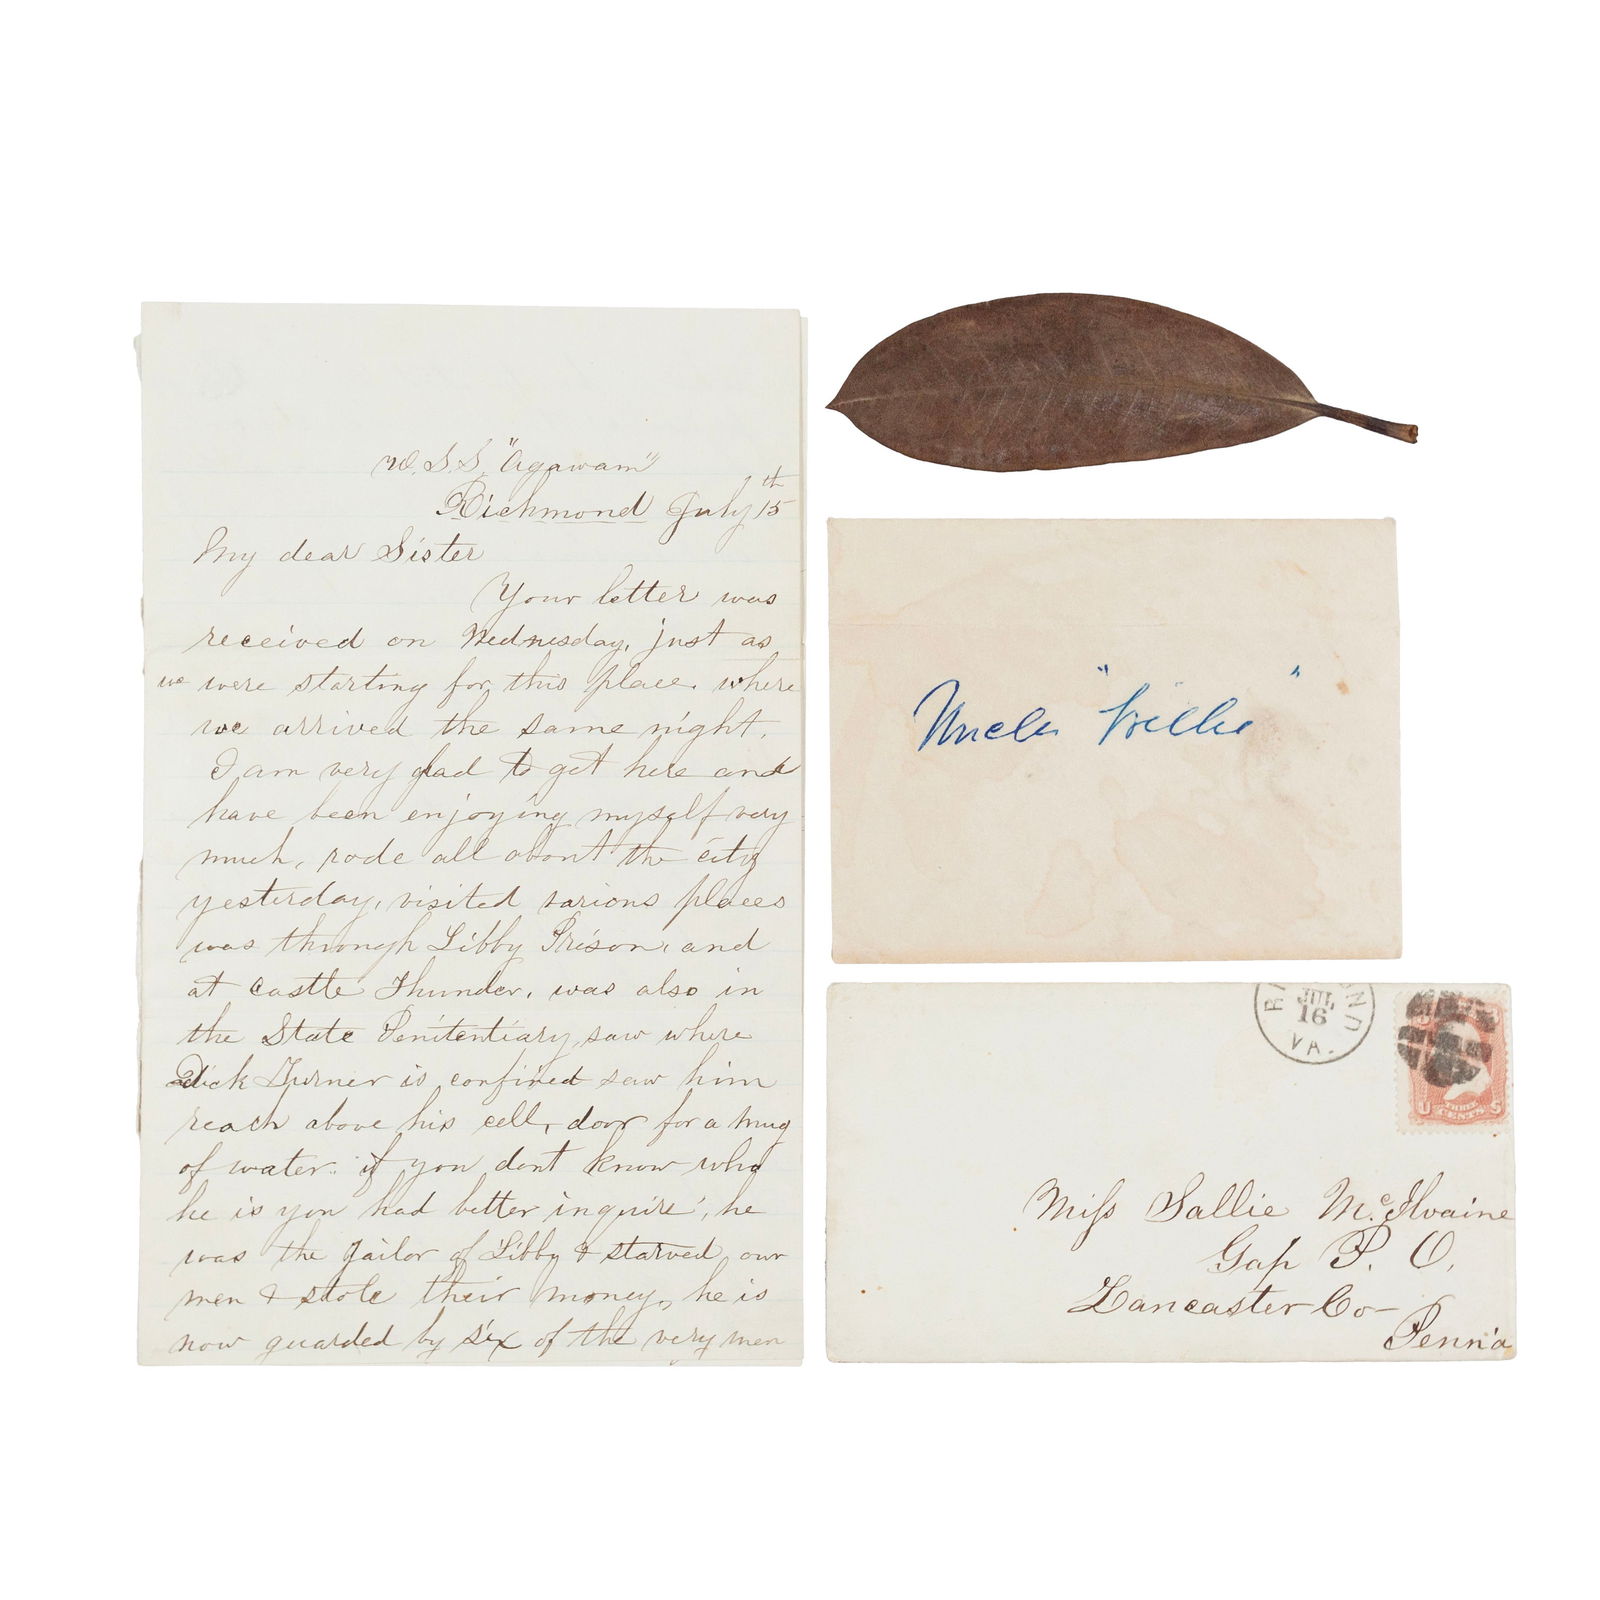 U.S.S. "Agawam"
Richmond July 15th
My dear Sister
Your letter was
received on Wednesday, just as
we were starting for this place. where
we arrived the same night.
I am very glad to get here and
have been enjoying myself very
much, rode all about the city
yesterday, visited various places
was through Libby Prison, and
at Castle Thunder, was also in
the State Penitentiary, saw where
Dick Turner is confined saw him
reach above his cell, door for a mug
of water. if you dont know who
he is you had better inquire, he
was the Jailor of Libby & starved our
men & stole their money, he is
now guarded by six of the very men
Uncle "Willie"
RICHMOND
JUL
16
VA.
U THREE CENTS S
Miss Sallie McIlvaine
Gap P. O.
Lancaster Co-
Penn'a